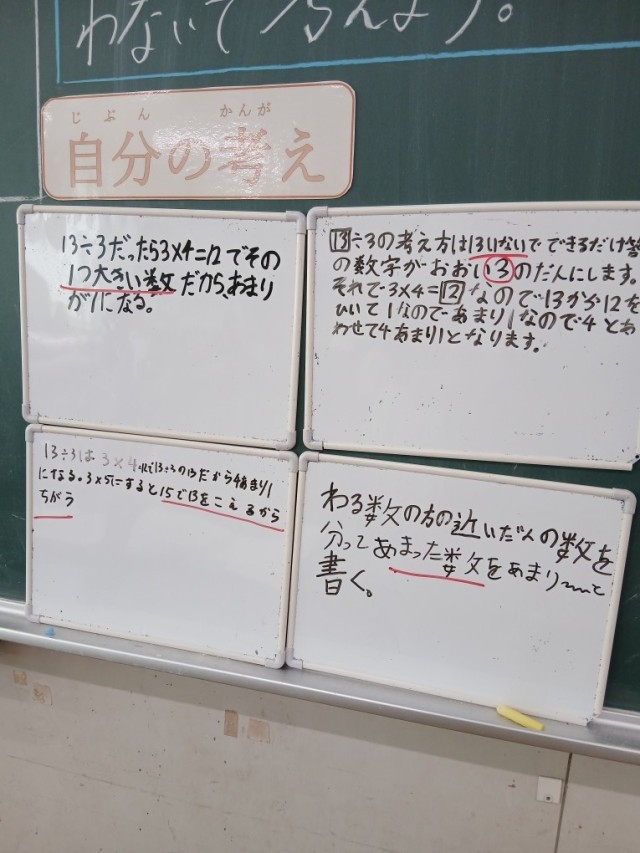 わないで考えよう。
じぶん かんが
自分の考え
13÷3だったら3×4=12でその
1つ大きい数だから、あまり
が1になる。
13÷3の考え方は13いないで できるだけ答
の数字がおおい3のだんにします。
それで3×4=12なので13から12を
ひいて1なのであまり1なので4とあ
わせて4あまり1となります。
13÷3は3×4
で13÷3の13だから4あまり1
になる。3×5にすると15で13をこえるから
ちがう
わる数の方の近いだんの数を
分ってあまった数をあまり〜と
書く。